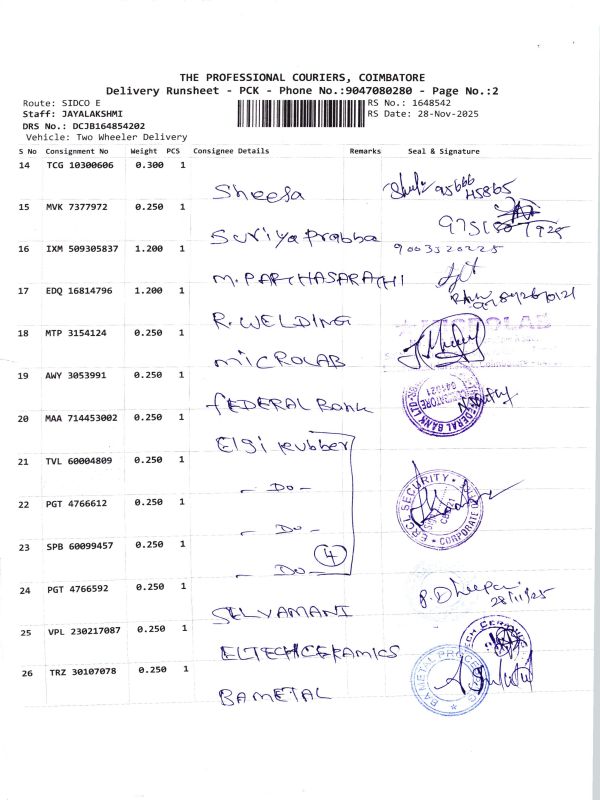 THE PROFESSIONAL COURIERS, COIMBATORE
Delivery Runsheet - PCK - Phone No.:9047080280 - Page No.:2
Route: SIDCO E
RS No.: 1648542
Staff: JAYALAKSHMI
RS Date: 28-Nov-2025
DRS No.: DCJB164854202
Vehicle: Two Wheeler Delivery
S No Consignment No Weight PCS Consignee Details Remarks Seal & Signature
14 TCG 10300606 0.300 1
Sheesa
95666
45865
15 MVK 7377972 0.250 1
Suriya Prabba
16 IXM 509305837 1.200 1
9003320225
M. PARTHASARATHI
17 EDQ 16814796 1.200 1
R. WELDING
18 MTP 3154124 0.250 1
MICROLAB
MICROLAB
19 AWY 3053991 0.250 1
FEDERAL BANK
FEDERAL BANK LTD
COIMBATORE
641021
20 MAA 714453002 0.250 1
Elgi rubber
21 TVL 60004809 0.250 1
- DO -
ERCL SECURITY
CORPORATE
22 PGT 4766612 0.250 1
- DO -
23 SPB 60099457 0.250 1
4
- DO -
24 PGT 4766592 0.250 1
28/11/25
SELVAMANI
25 VPL 230217087 0.250 1
ELTECH CERAMICS
26 TRZ 30107078 0.250 1
BAMETAL